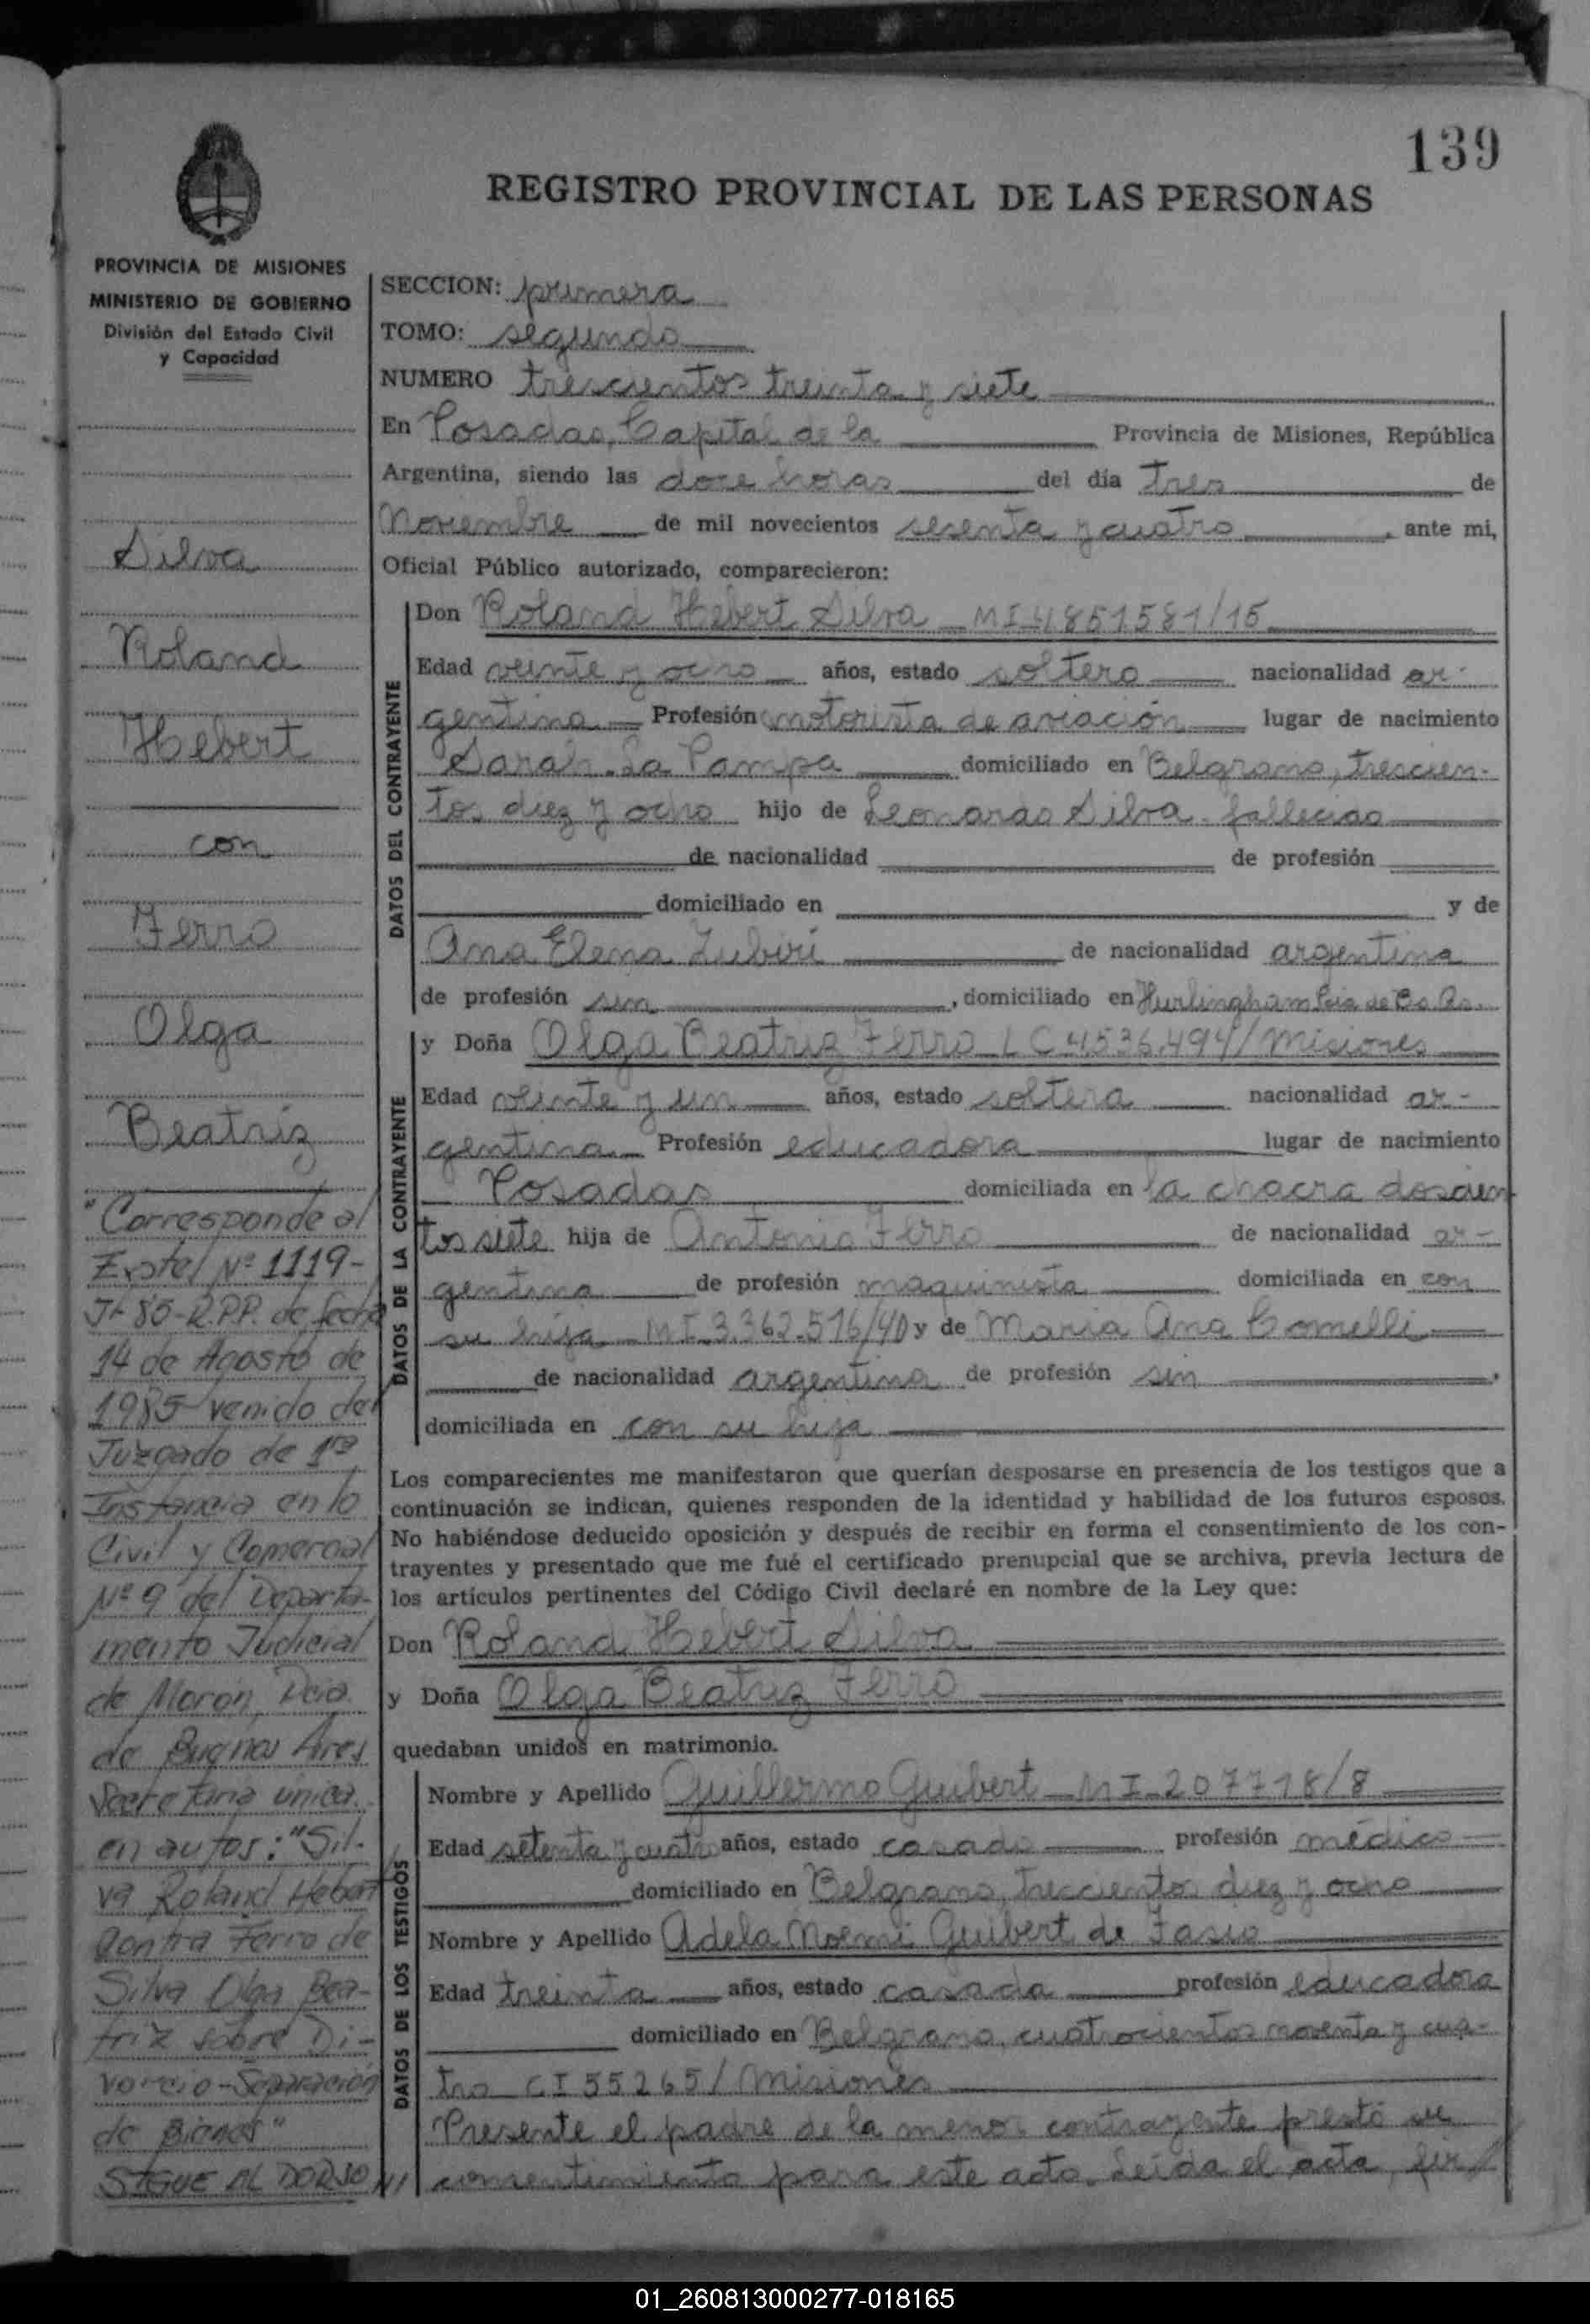 139
REGISTRO PROVINCIAL DE LAS PERSONAS
PROVINCIA DE MISIONES
MINISTERIO DE GOBIERNO
División del Estado Civil
y Capacidad
Silva
Roland
Hebert
con
Ferro
Olga
Beatriz
"Corresponde al
Expte Nº 1119-
J-85-R.P.P. de fecha
14 de Agosto de
1985 venido del
Juzgado de 1ra
Instancia en lo
Civil y Comercial
Nº 9 del Departa-
mento Judicial
de Moron, Pcia.
de Buenos Aires
Secretaria única.
en autos: "Sil-
va Roland Hebert
contra Ferro de
Silva Olga Bea-
triz sobre Di-
vorcio-Separación
de Bienes"
SIGUE AL DORSO ///
SECCION: primera
TOMO: segundo
NUMERO trescientos treinta y siete
En Posadas, Capital de la Provincia de Misiones, República
Argentina, siendo las doce horas del día tres de
Noviembre de mil novecientos sesenta y cuatro, ante mi,
Oficial Público autorizado, comparecieron:
DATOS DEL CONTRAYENTE
Don Roland Hebert Silva MI 4851581/15
Edad veinte y ocho años, estado soltero nacionalidad ar-
gentina Profesión motorista de aviación lugar de nacimiento
Sarah. La Pampa domiciliado en Belgrano, trescien-
tos diez y ocho hijo de Leonardo Silva. fallecido
de nacionalidad de profesión
domiciliado en y de
Ana Elena Zubiri de nacionalidad argentina
de profesión sin, domiciliado en Hurlingham Pcia de Bs As.
DATOS DE LA CONTRAYENTE
y Doña Olga Beatriz Ferro LC 4.536.494/Misiones
Edad veinte y un años, estado soltera nacionalidad ar-
gentina Profesión educadora lugar de nacimiento
Posadas domiciliada en la chacra doscien
tos siete hija de Antonio Ferro de nacionalidad ar-
gentina de profesión maquinista domiciliada en con
su hija MI 3.362.516/40 y de Maria Ana Comelli
de nacionalidad argentina de profesión sin.
domiciliada en con su hija
Los comparecientes me manifestaron que querían desposarse en presencia de los testigos que a
continuación se indican, quienes responden de la identidad y habilidad de los futuros esposos.
No habiéndose deducido oposición y después de recibir en forma el consentimiento de los con-
trayentes y presentado que me fué el certificado prenupcial que se archiva, previa lectura de
los artículos pertinentes del Código Civil declaré en nombre de la Ley que:
Don Roland Hebert Silva
y Doña Olga Beatriz Ferro
quedaban unidos en matrimonio.
DATOS DE LOS TESTIGOS
Nombre y Apellido Guillermo Guibert MI 207718/8
Edad setenta y cuatro años, estado casado profesión médico
domiciliado en Belgrano, trescientos diez y ocho
Nombre y Apellido Adela Noemí Guibert de Fasio
Edad treinta años, estado casada profesión educadora
domiciliado en Belgrano, cuatrocientos noventa y cua-
tro CI 55265/Misiones
Presente el padre de la menor contrayente prestó su
consentimiento para este acto. Leida el acta, fir/
01_260813000277-018165